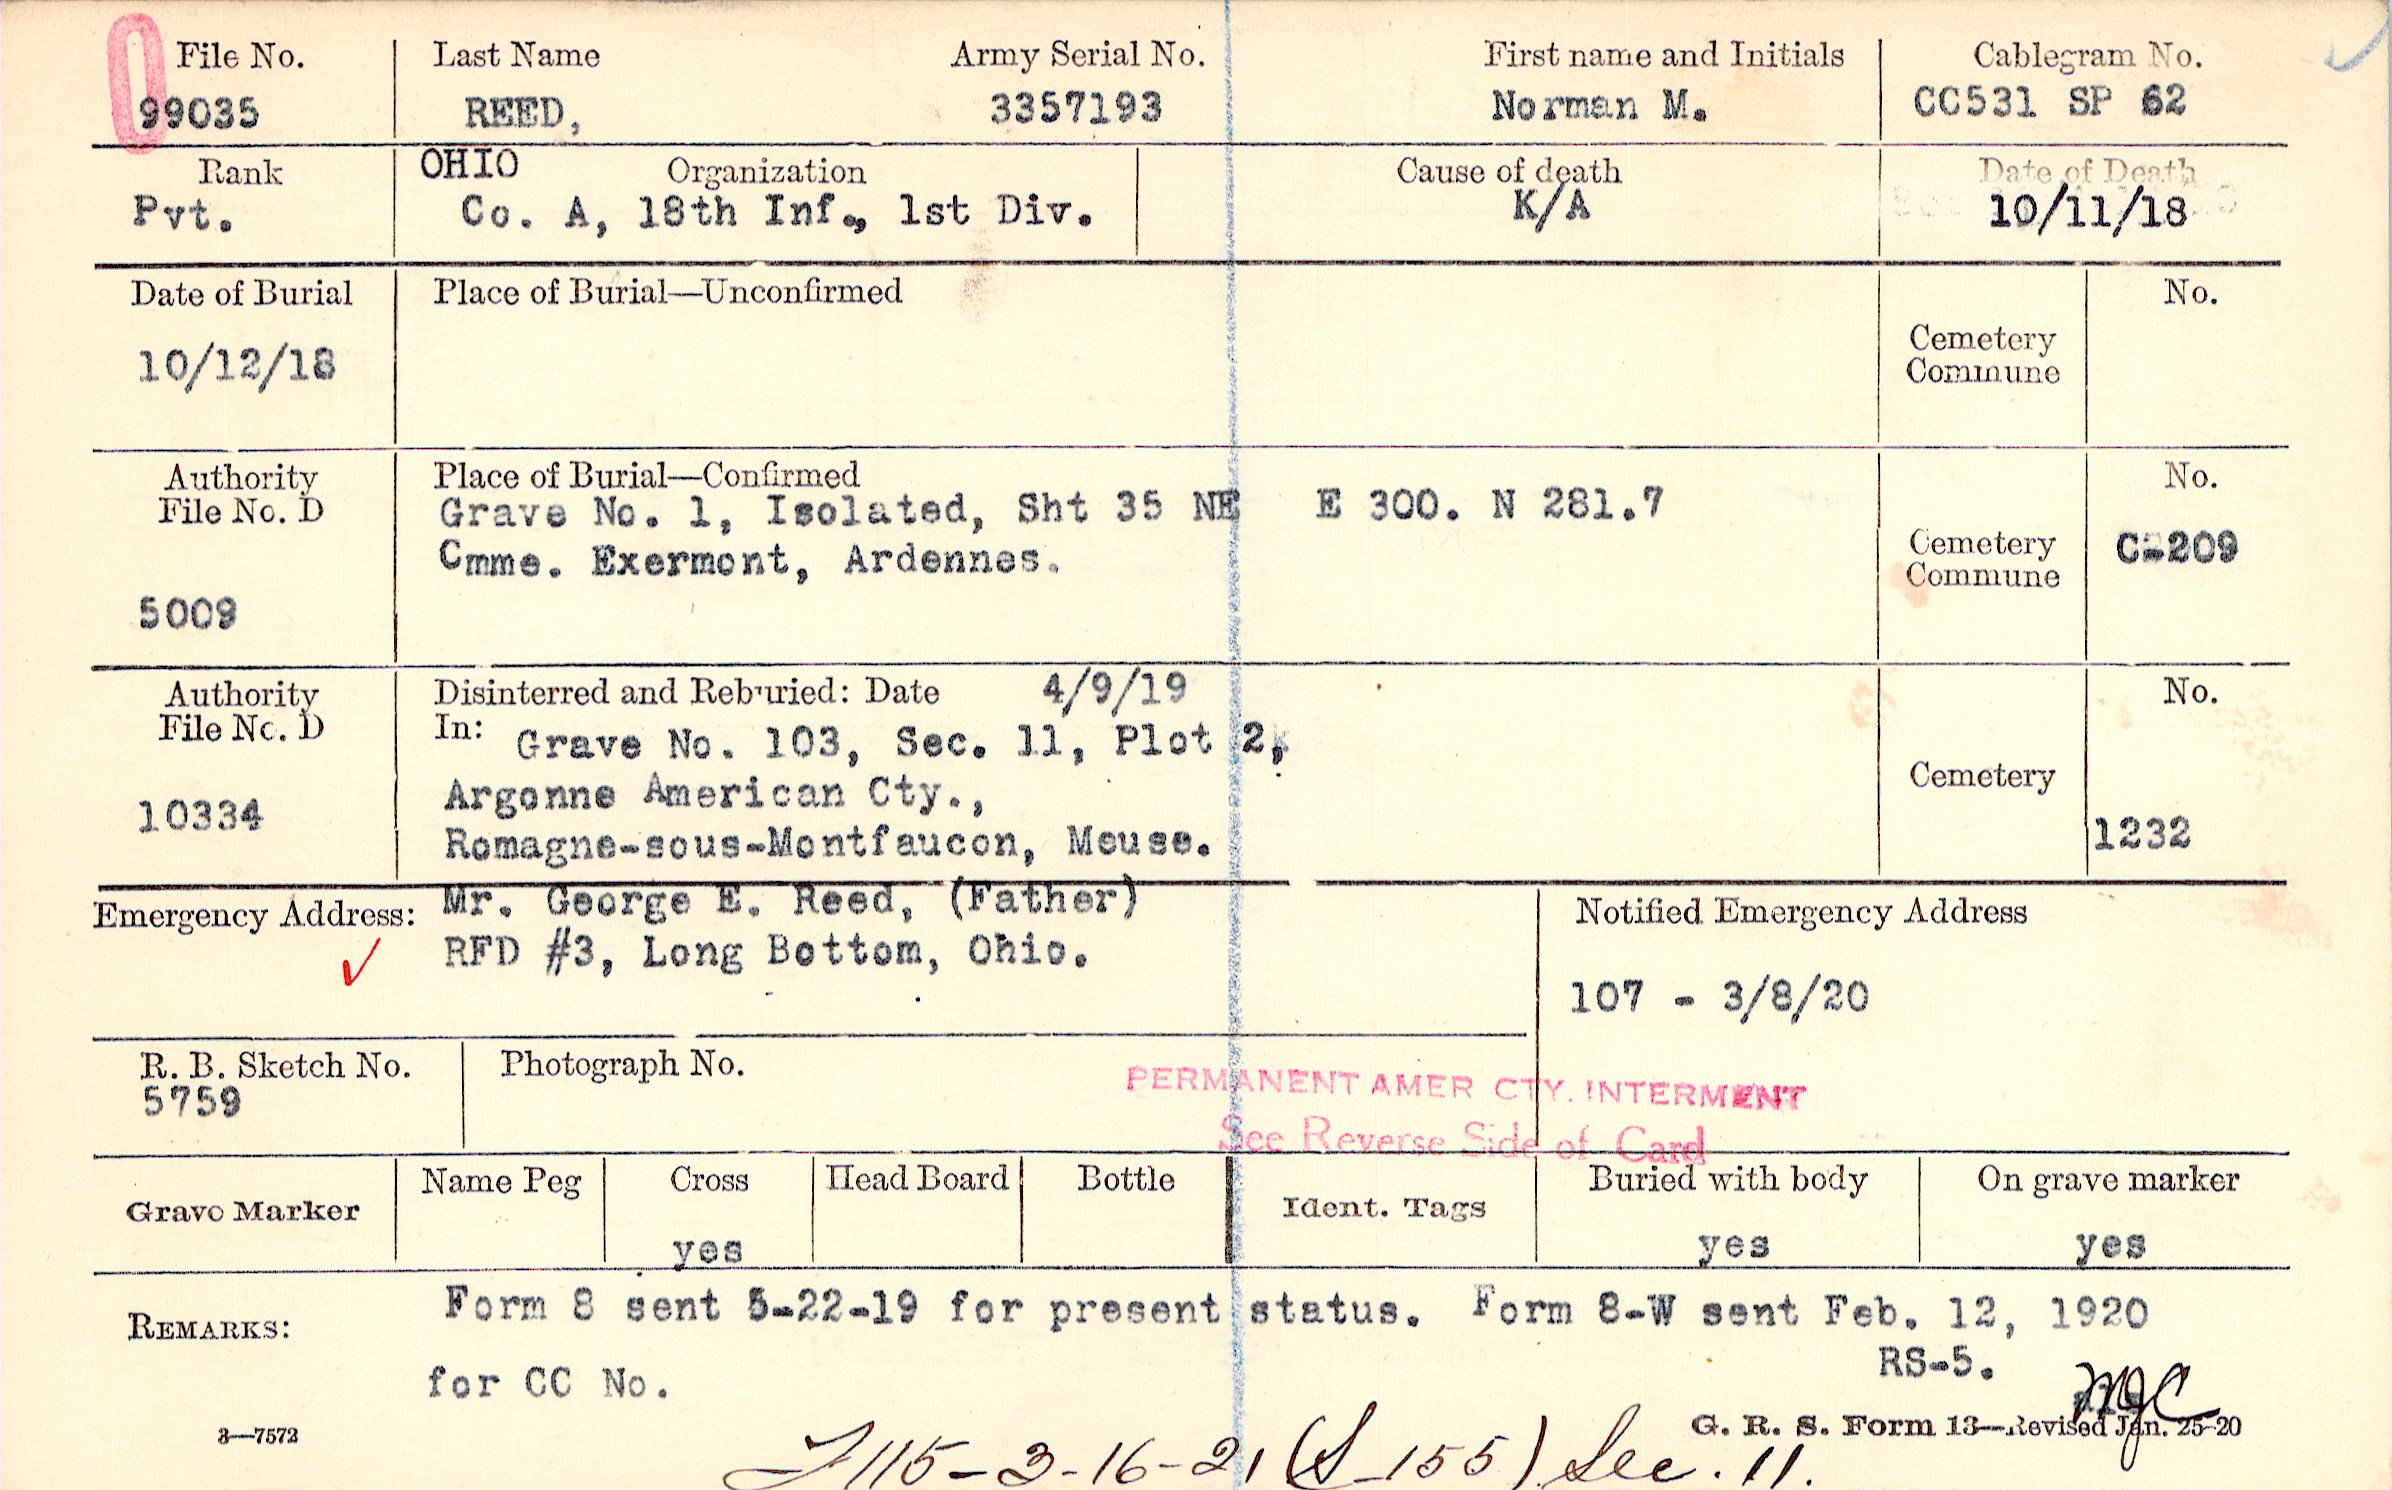 File No. Last Name Army Serial No. First name and Initials Cablegram No.
99035 REED, 3357193 Norman M. CC531 SP 62
Rank OHIO Organization Cause of death Date of Death
Pvt. Co. A, 18th Inf., 1st Div. K/A 10/11/18
Date of Burial Place of Burial—Unconfirmed No.
10/12/18 Cemetery
Commune
Authority Place of Burial—Confirmed No.
File No. D Grave No. 1, Isolated, Sht 35 NE E 300. N 281.7
Cmme. Exermont, Ardennes. Cemetery C-209
Commune
5009
Authority Disinterred and Reburied: Date 4/9/19 No.
File No. D In: Grave No. 103, Sec. 11, Plot 2,
10334 Argonne American Cty., Cemetery
Romagne-sous-Montfaucon, Meuse. 1232
Emergency Address: Mr. George E. Reed, (Father) Notified Emergency Address
RFD #3, Long Bottom, Ohio.
107 - 3/8/20
R. B. Sketch No. Photograph No.
5759
PERMANENT AMER CTY. INTERMENT
See Reverse Side of Card
Grave Marker Name Peg Cross Head Board Bottle Ident. Tags Buried with body On grave marker
yes yes yes
REMARKS: Form 8 sent 5-22-19 for present status. Form 8-W sent Feb. 12, 1920
for CC No. RS-5.
3—7572 G. R. S. Form 13—Revised Jan. 25-20
115-3-16-21 (S-155) Sec. 11.